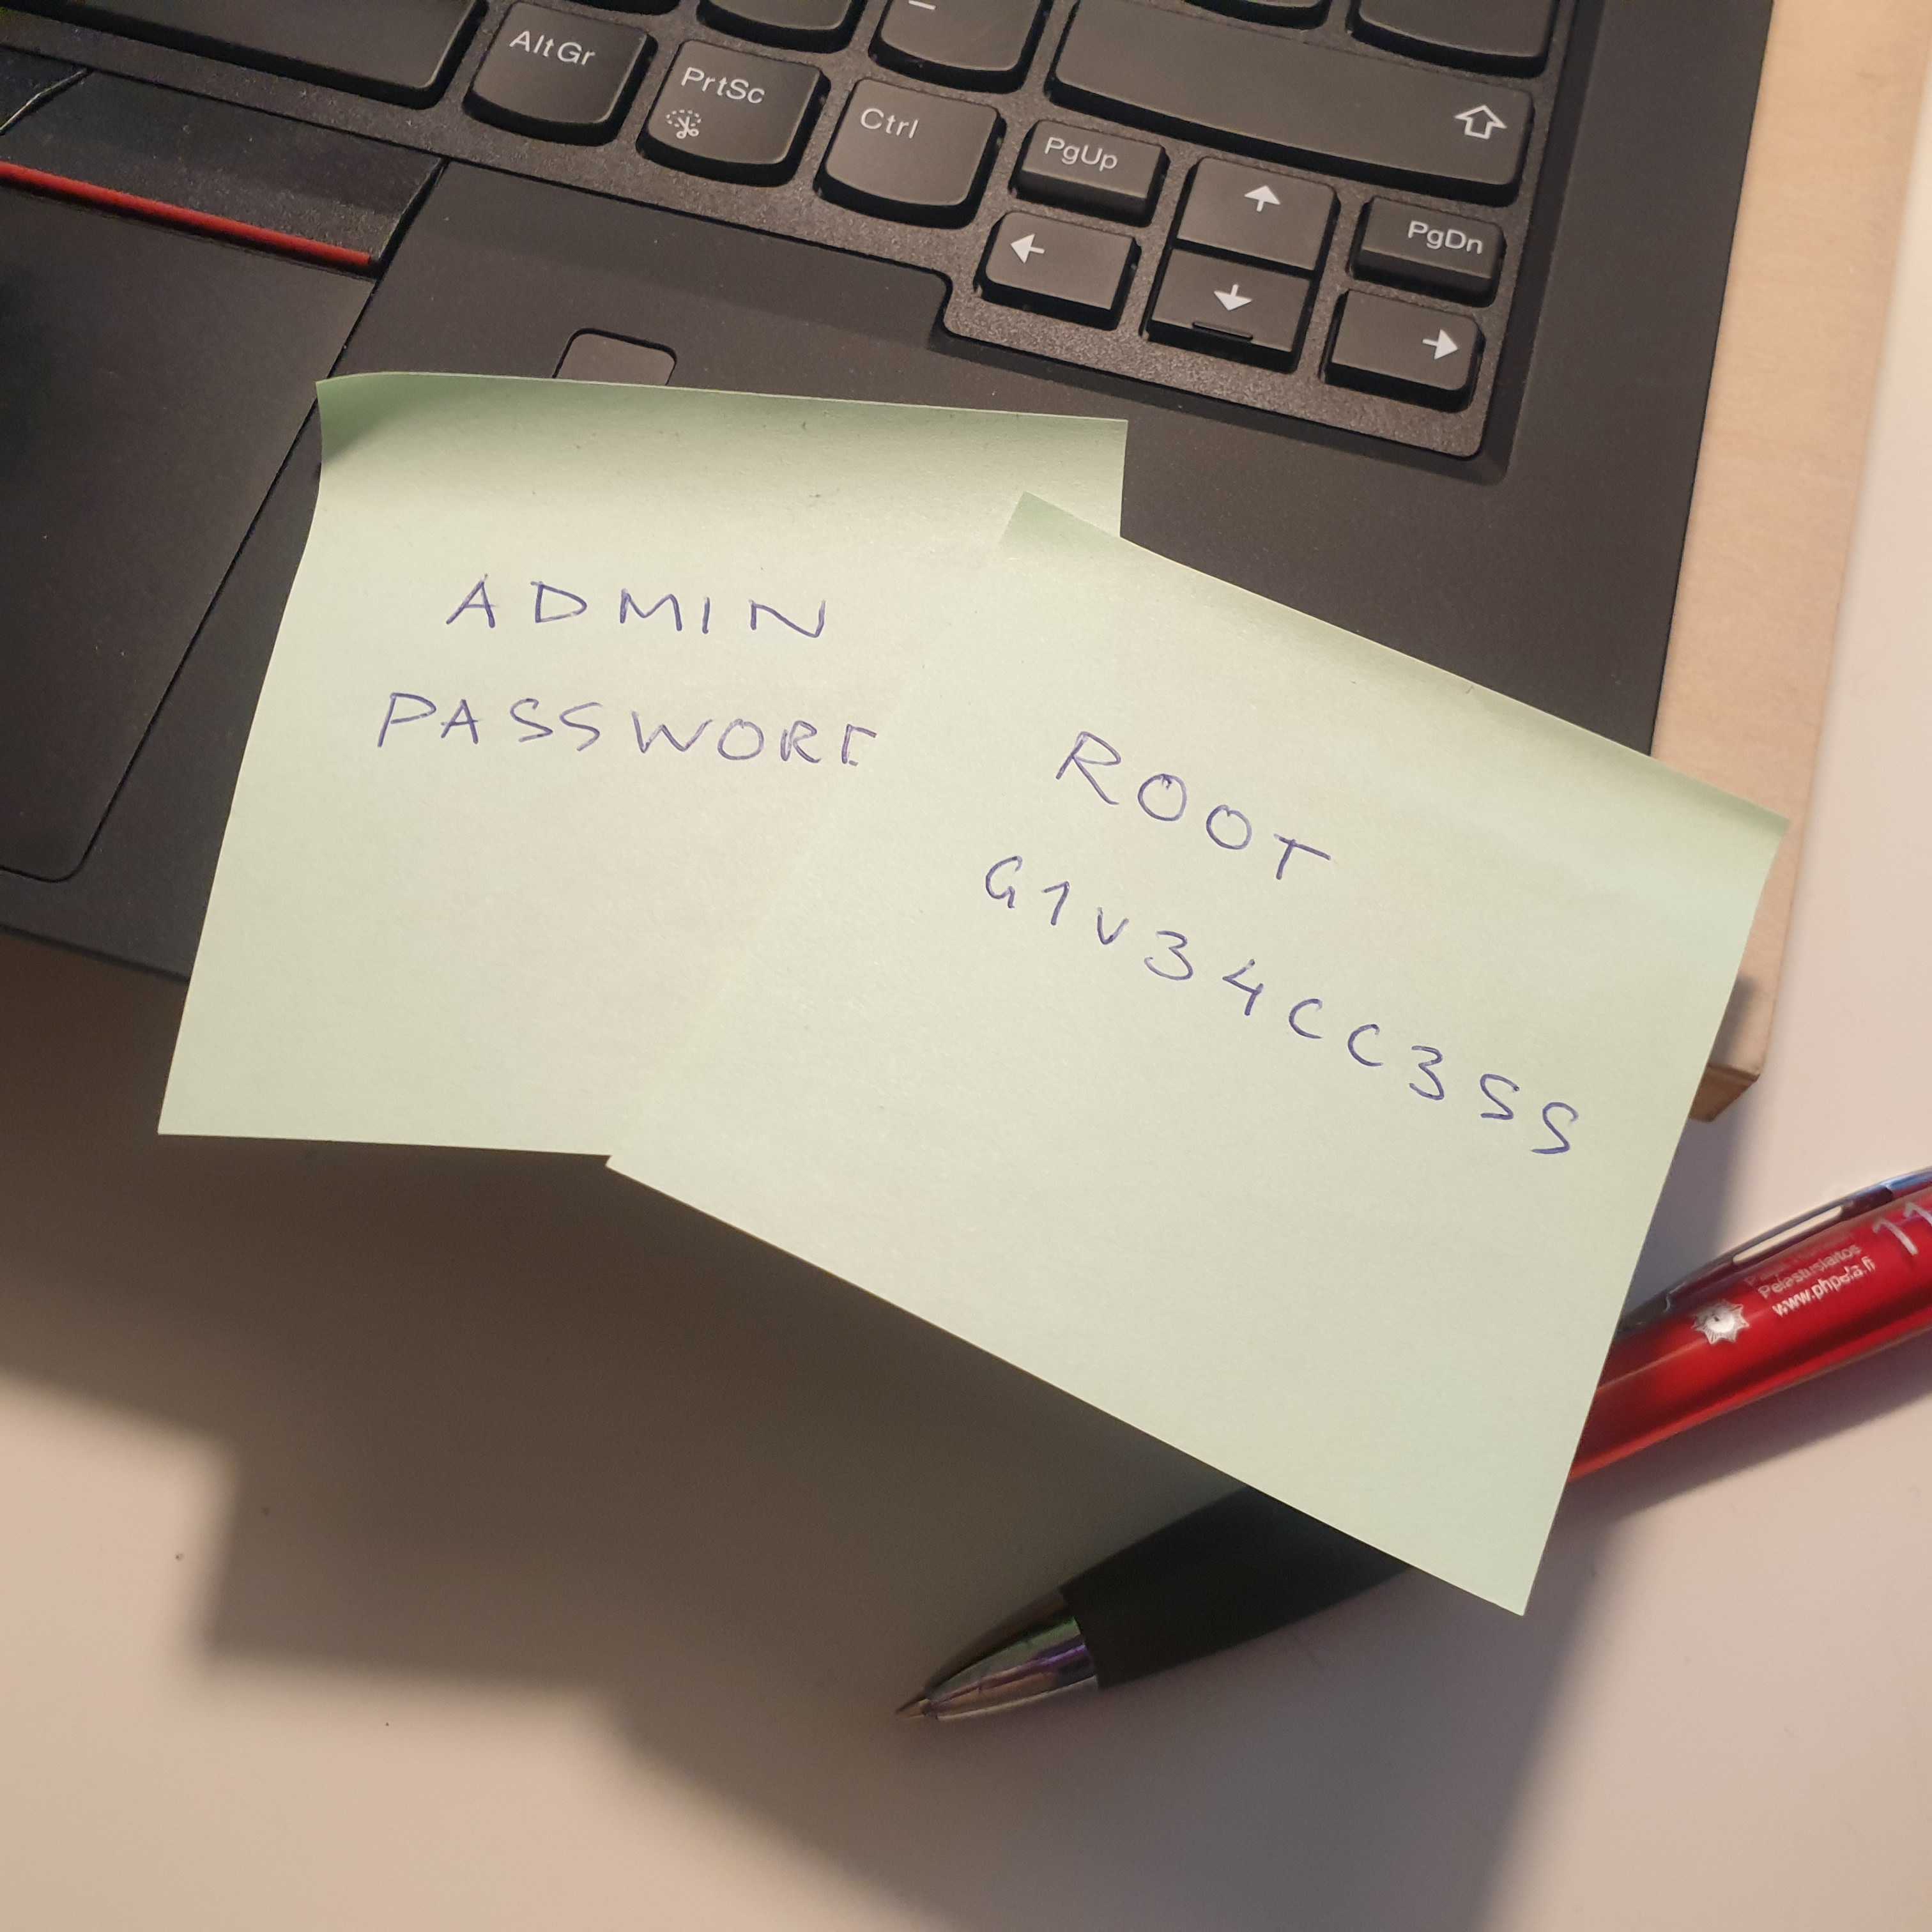 AltGr
PrtSc
Ctrl
PgUp
PgDn
ADMIN
PASSWORD
ROOT
G1V34CC3SS
Pelastuslaitos
www.phpela.fi
11